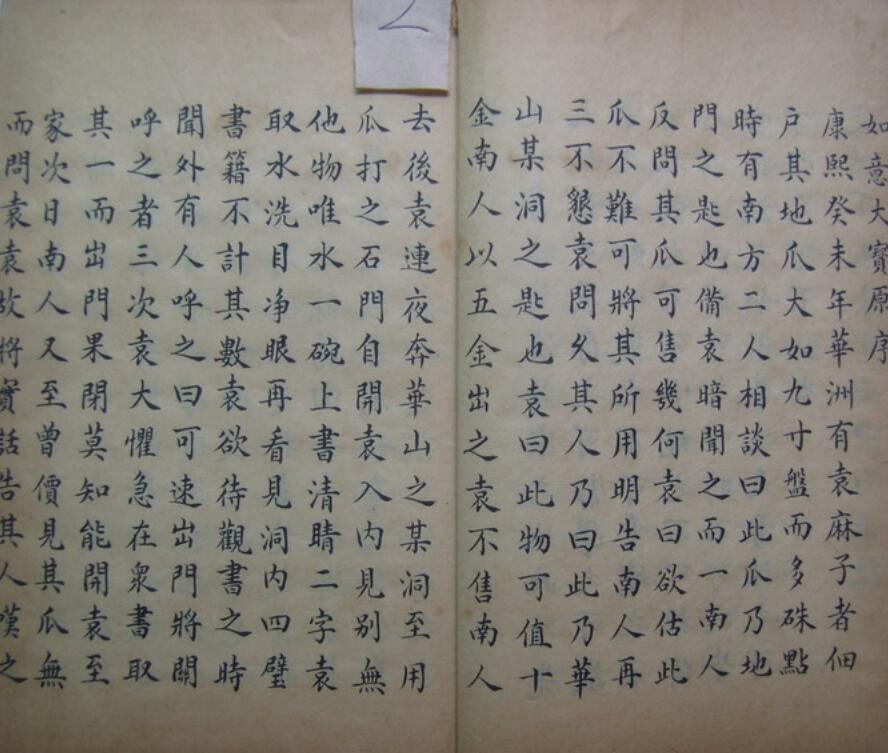 如意大寶原序
康熙癸未年華洲有袁麻子者佃
户其地瓜大如九寸盤而多硃點
時有南方二人相談曰此瓜乃地
門之匙也偹袁暗聞之而一南人
反問其瓜可售幾何袁曰欲估此
瓜不難可將其所用明告南人再
三不懇袁問久其人乃曰此乃華
山某洞之匙也袁曰此物可值十
金南人以五金出之袁不售南人
去後袁連夜奔華山之某洞至用
瓜打之石門自開袁入內見别無
他物唯水一碗上書清睛二字袁
取水洗目净眼再看見洞内四壁
書籍不計其數袁欲待觀書之時
聞外有人呼之曰可速出門將關
呼之者三次袁大懼急在衆書取
其一而出門果閉莫知能開袁至
家次日南人又至曾價見其瓜無
而問袁袁故將實話告其人嘆之